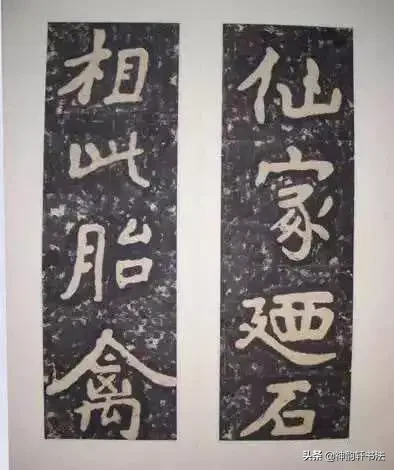 仙家廼石
相此胎禽
头条 @神韵轩书法